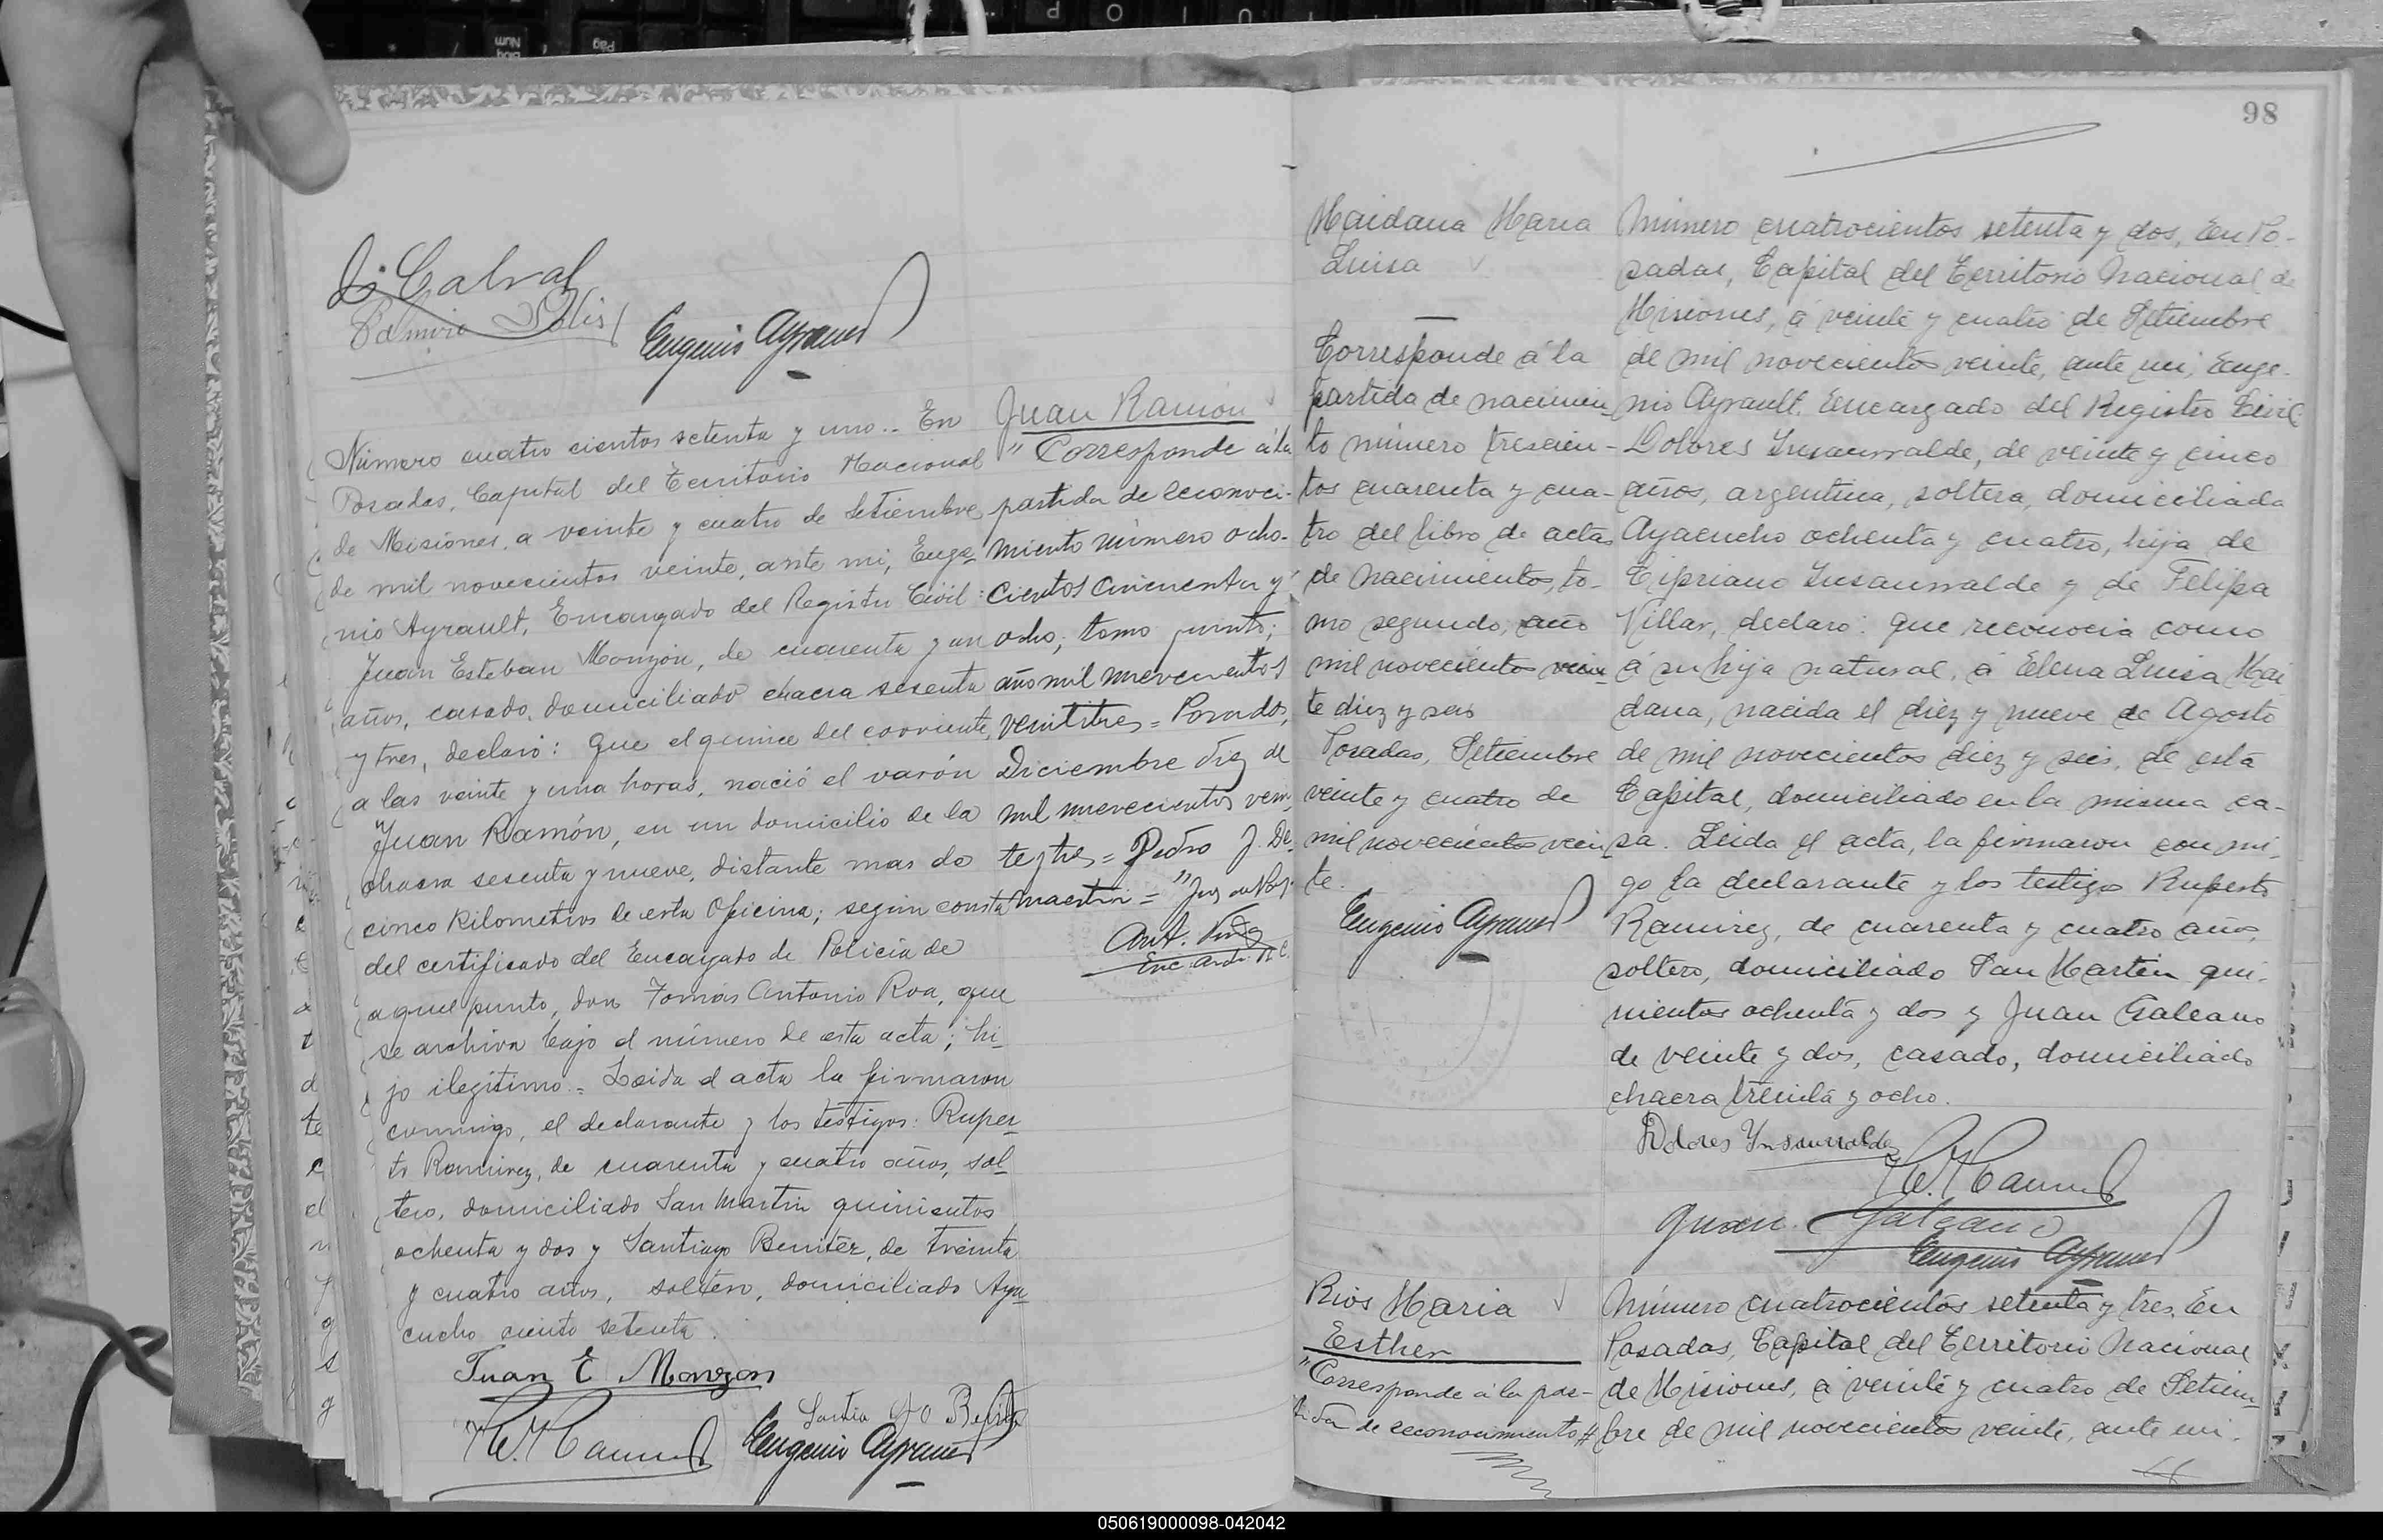 98
D. Cabral
Ramiro Solis
Eugenio Ayrault
Número cuatro cientos setenta y uno.. En
Posadas, Capital del Territorio Nacional
de Misiones, a veinte y cuatro de Setiembre
de mil novecientos veinte, ante mi, Euge-
nio Ayrault, Encargado del Registro Civil:
Juan Esteban Monzón, de cuarenta y un
años, casado, domiciliado chacra sesenta
y tres, declaró: Que el quince del corriente,
a las veinte y una horas, nació el varón
Juan Ramón, en un domicilio de la
chacra sesenta y nueve, distante mas de
cinco Kilometros de esta Oficina; según consta
del certificado del Encargado de Policía de
aquel punto, don Tomás Antonio Roa, que
se archiva bajo el número de esta acta; hi-
jo ilegítimo.- Leida el acta la firmaron
conmigo, el declarante y los testigos: Ruper-
to Ramirez, de cuarenta y cuatro años, sol-
tero, domiciliado San Martin quinientos
ochenta y dos y Santiago Benitez, de treinta
y cuatro años, soltero, domiciliado Aya-
cucho ciento setenta.
Juan E Monzon
Eugenio Ayrault
Juan Ramón
"Corresponde á la
partida de reconoci-
miento número ocho-
cientos cincuenta y
ocho, tomo quinto;
año mil novecientos
veintitres = Posadas,
Diciembre diez de
mil novecientos vein-
te y tres = Pedro J. De-
maestri = "Juez de Paz.
Enc. Arch. R. C.
Maidana Maria
Luisa
Corresponde á la
partida de nacimien-
to número trescien-
tos cuarenta y cua-
tro del libro de actas
de nacimientos, to-
mo segundo, año
mil novecientos vein-
te diez y seis
Posadas, Setiembre
veinte y cuatro de
mil novecientos vein
te.
Eugenio Ayrault
Número cuatrocientos setenta y dos, En Po-
sadas, Capital del Territorio Nacional de
Misiones, á veinte y cuatro de Setiembre
de mil novecientos veinte, ante mi, Euge-
nio Ayrault, Encargado del Registro Civil
Dolores Insaurralde, de veinte y cinco
años, argentina, soltera, domiciliada
Ayacucho ochenta y cuatro, hija de
Cipriano Insaurralde y de Felipa
Villar, declaró: Que reconocia como
á su hija natural, á Elena Luisa Mai
dana, nacida el diez y nueve de Agosto
de mil novecientos diez y seis, de esta
Capital, domiciliado en la misma ca-
sa. Leida el acta, la firmaron conmi-
go la declarante y los testigos Ruperto
Ramirez, de cuarenta y cuatro años,
soltero, domiciliado San Martin qui-
nientos ochenta y dos y Juan Galeano
de veinte y dos, casado, domiciliado
chacra treinta y ocho.
Dolores Ynsaurralde
Juan Galeano
Eugenio Ayrault
Rios Maria
Esther
"Corresponde á la par-
tida de reconocimiento #
Número cuatrocientos setenta y tres, En
Posadas, Capital del Territorio Nacional
de Misiones, á veinte y cuatro de Setiem-
bre de mil novecientos veinte, ante mi.
050619000098-042042